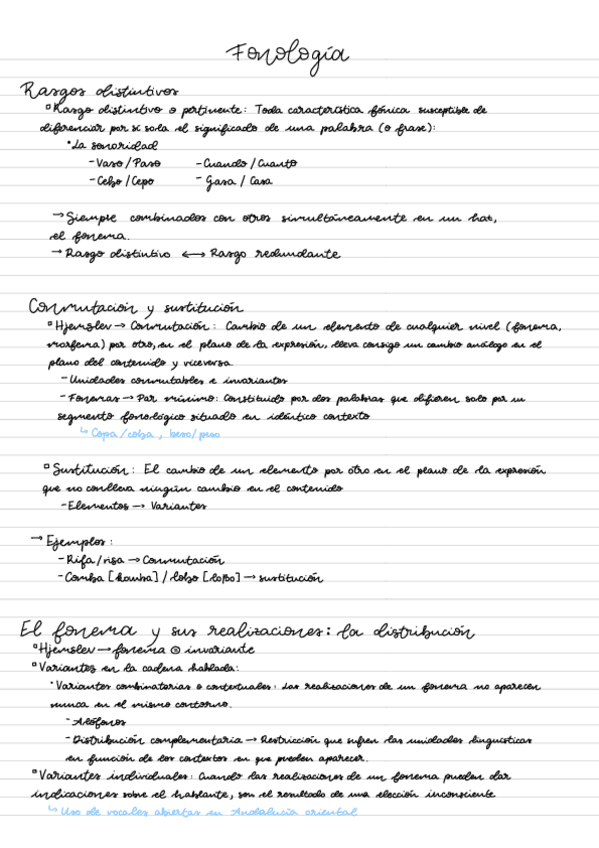 Fonología
Rasgos distintivos
▫Rasgo distintivo o pertinente: Toda característica fónica susceptible de
diferenciar por sí sola el significado de una palabra (o frase):
•La sonoridad
-Vaso/Paso -Cuando/Cuanto
-Cebo/Cepo - Gasa/Casa
→Siempre combinados con otros simultáneamente en un haz,
el fonema.
→ Rasgo distintivo ⟷ Rasgo redundante
Conmutación y sustitución
▫Hjemslev→ Conmutación: Cambio de un elemento de cualquier nivel (fonema,
morfema) por otro, en el plano de la expresión, lleva consigo un cambio análogo en el
plano del contenido y viceversa
-Unidades conmutables e invariantes
-Fonemas→ Par mínimo: Constituido por dos palabras que difieren solo por un
segmento fonológico situado en idéntico contexto
↳ Copa/coba, beso/peso
▫Sustitución: El cambio de un elemento por otro en el plano de la expresión
que no conlleva ningún cambio en el contenido
-Elementos→ Variantes
→ Ejemplos:
-Rifa/risa → Conmutación
-Comba [komba]/lobo [loβo] → sustitución
El fonema y sus realizaciones: la distribución
▫Hjemslev→ fonema invariante
▫Variantes en la cadena hablada:
•Variantes combinatorias o contextuales: Las realizaciones de un fonema no aparecen
nunca en el mismo contorno.
-Alófonos
-Distribución complementaria → Restricción que sufren las unidades lingüísticas
en función de los contextos en que pueden aparecer.
▫Variantes individuales: Cuando las realizaciones de un fonema pueden dar
indicaciones sobre el hablante, son el resultado de una elección inconsciente
↳ Uso de vocales abiertas en Andalucía oriental